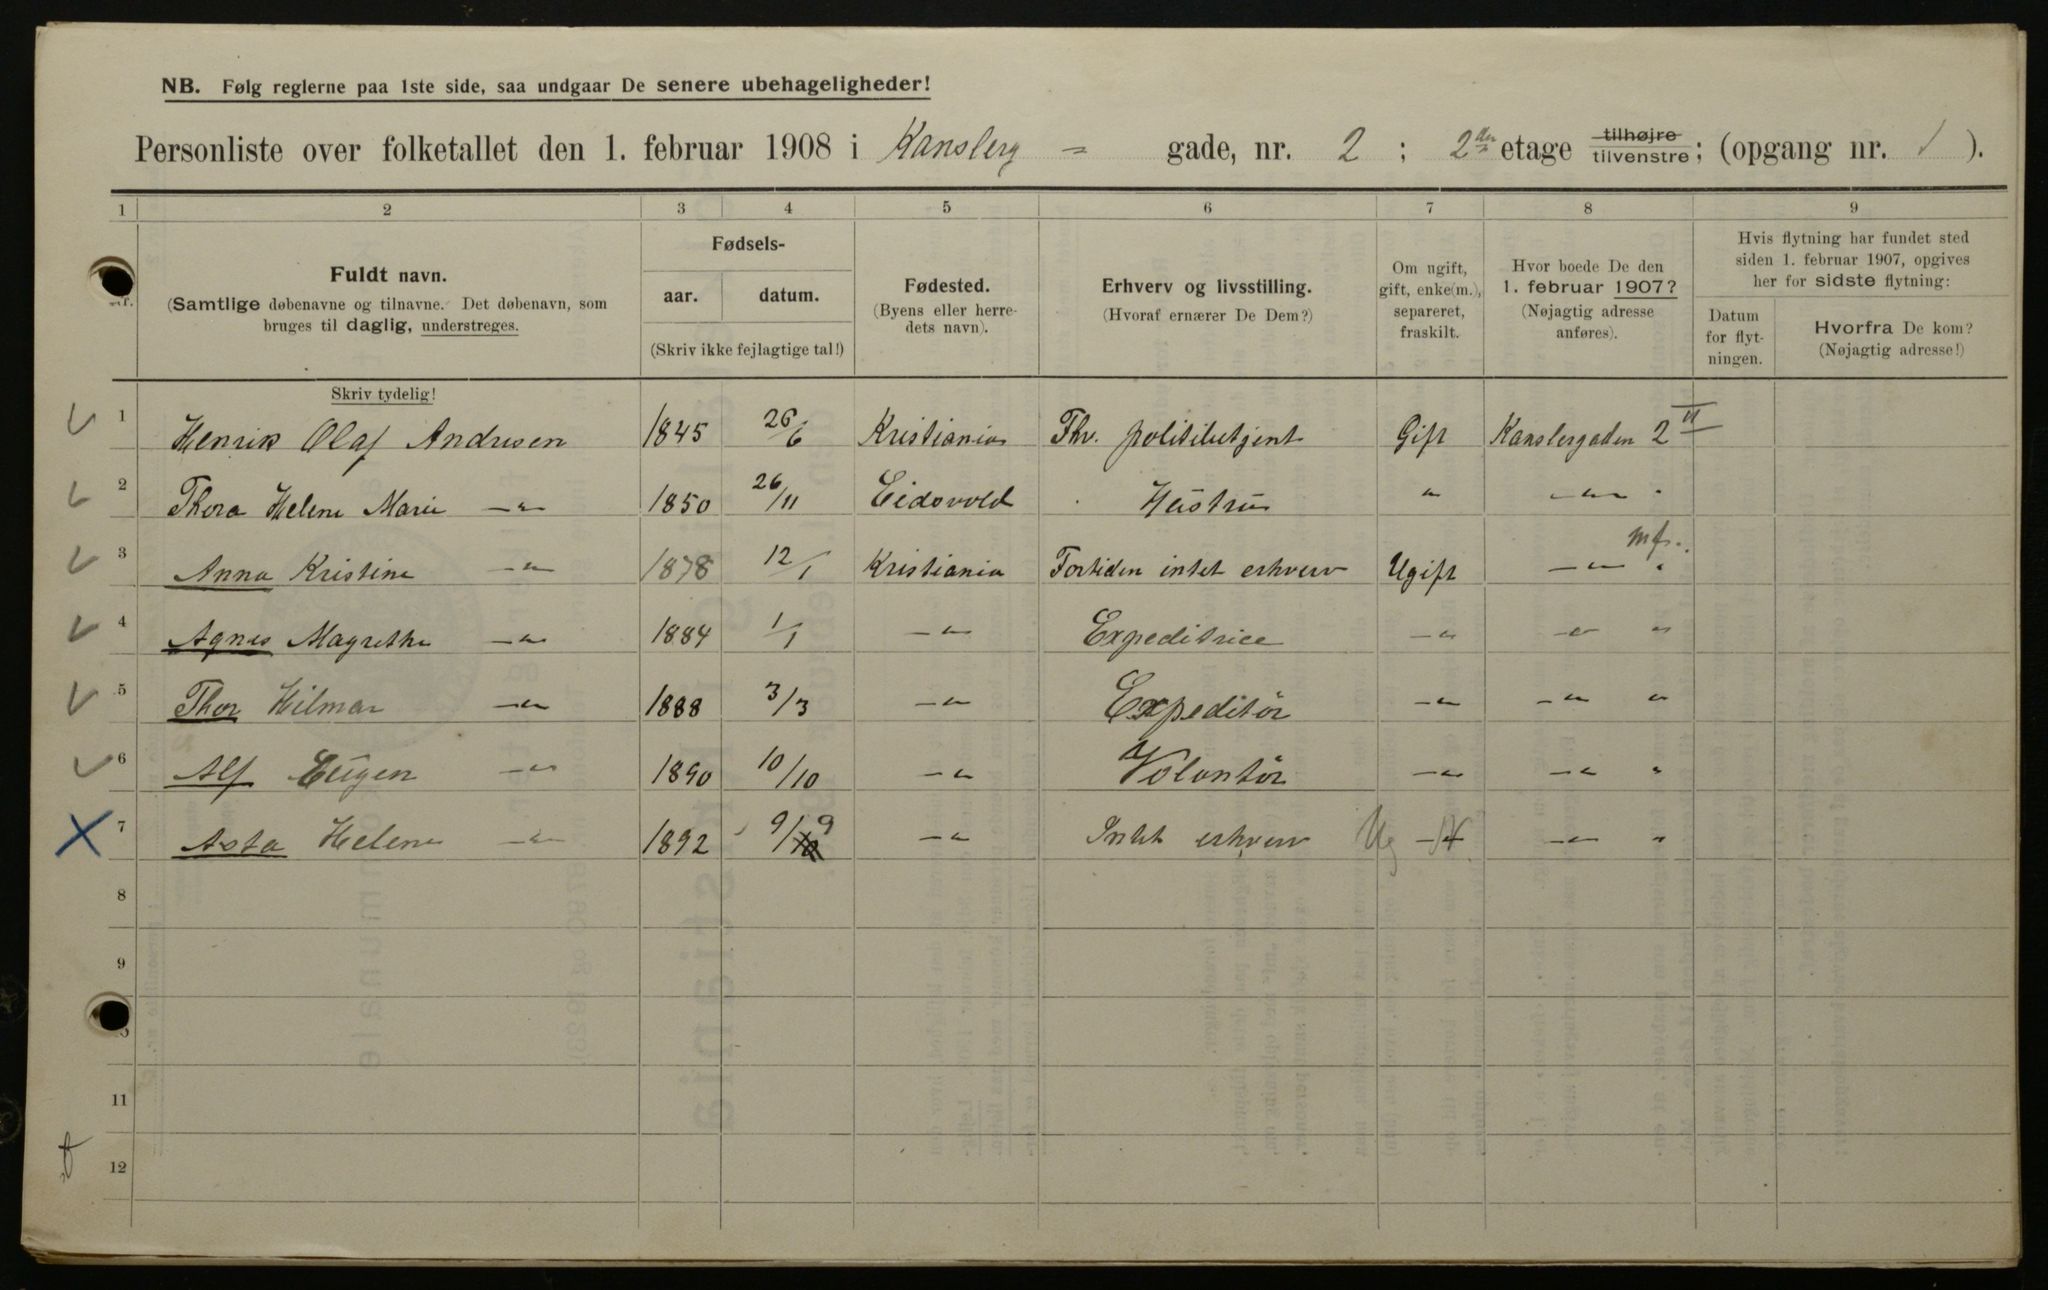 NB. Følg reglerne paa 1ste side, saa undgaar De senere ubehageligheder!
Personliste over folketallet den 1. februar 1908 i Kanslerg = gade, nr. 2 ; 2den etage tilhøjre tilvenstre; (opgang nr. 1 ).
1 2 3 4 5 6 7 8 9
Fuldt navn.
(Samtlige døbenavne og tilnavne. Det døbenavn, som
bruges til daglig, understreges.
Fødsels-
aar. datum.
(Skriv ikke fejlagtige tal!)
Fødested.
(Byens eller herre-
dets navn).
Erhverv og livsstilling.
(Hvoraf ernærer De Dem?)
Om ugift,
gift, enke(m.),
separeret,
fraskilt.
Hvor boede De den
1. februar 1907?
(Nøjagtig adresse
anføres).
Hvis flytning har fundet sted
siden 1. februar 1907, opgives
her for sidste flytning:
Datum
for flyt-
ningen.
Hvorfra De kom?
(Nøjagtig adresse!)
Skriv tydelig!
1 Henrik Olaf Andresen 1845 26/6 Kristiania Fhv. politibetjent Gift Kanslergaden 2 II
2 Thora Helene Marie —„— 1850 26/11 Eidsvold Hustru „ —„— „
3 Anna Kristine —„— 1878 12/1 Kristiania Fortiden intet erhverv Ugift —„— „ mf.
4 Agnes Magrethe —„— 1884 1/1 —„— Expeditrice —„— —„— „
5 Thor Hilmar —„— 1888 3/3 —„— Expeditör —„— —„— „
6 Alf Eugen —„— 1890 10/10 —„— Volontör —„— —„— „
7 Asta Helene —„— 1892 9/9 —„— Intet erhverv Ug —„— —„— „
8
9
11
12